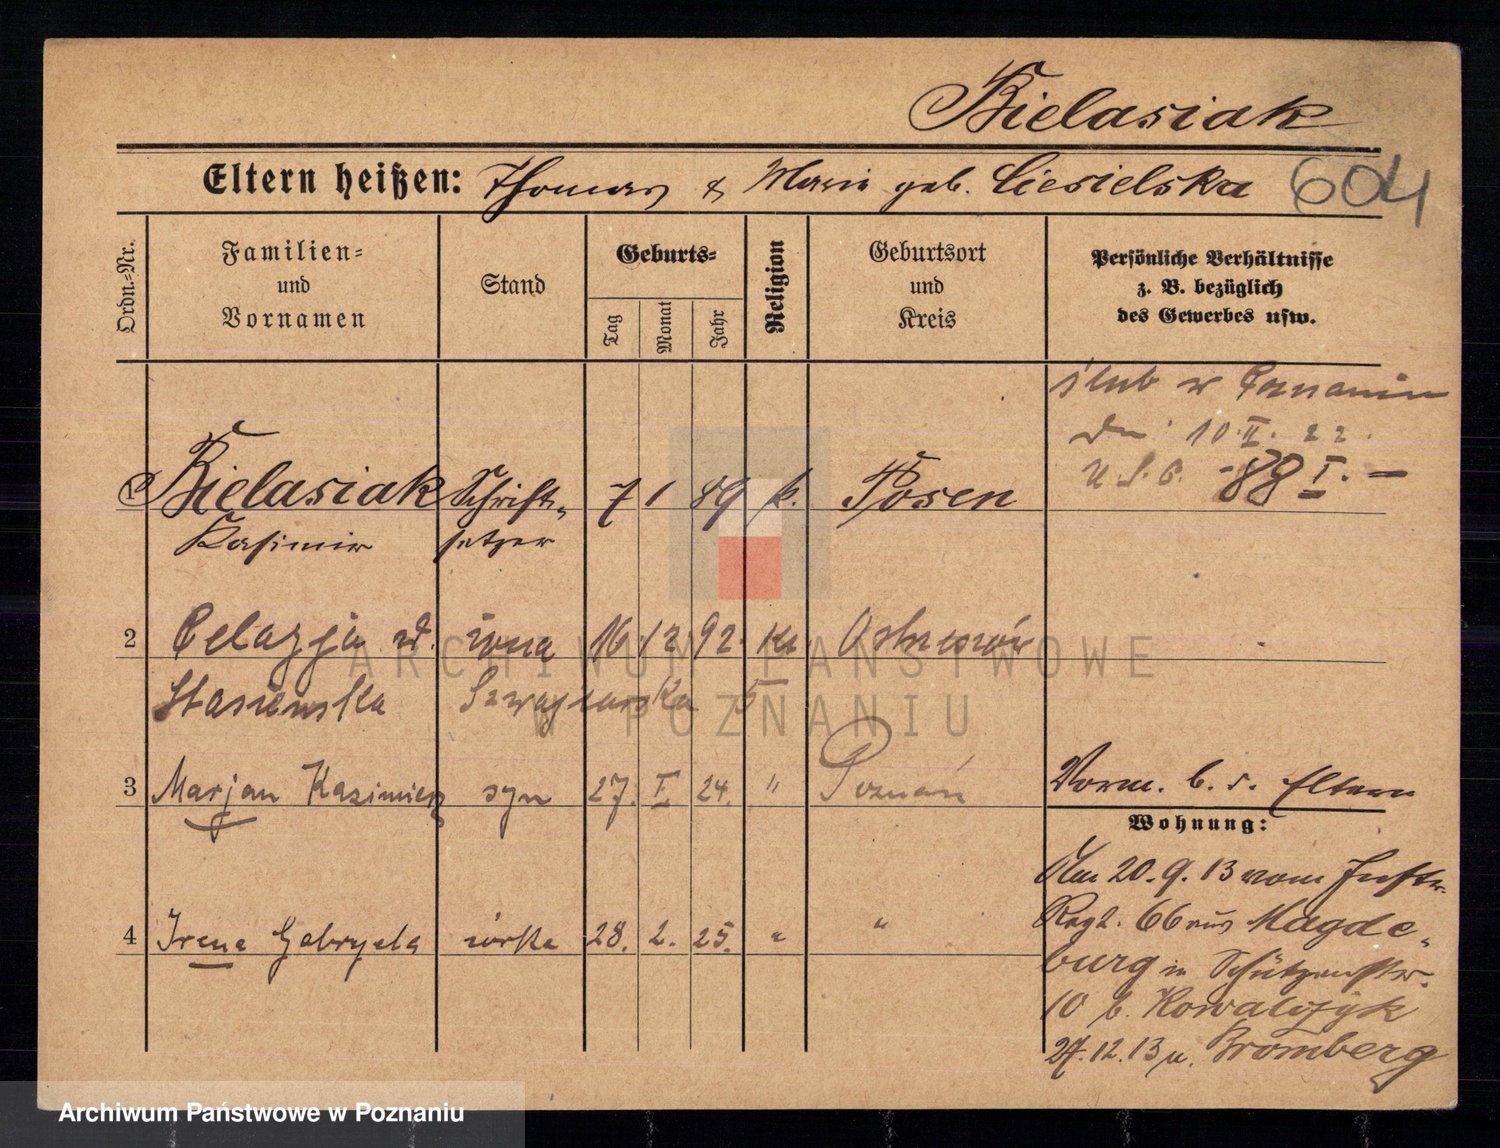 Bielasiak
Eltern heißen: Thomas & Maria geb. Ciesielska 604
Ordn.-Nr.
Familien-
und
Vornamen
Stand
Geburts-
Tag
Monat
Jahr
Religion
Geburtsort
und
Kreis
Persönliche Verhältnisse
z. B. bezüglich
des Gewerbes usw.
ślub w Poznaniu
10. II. 22.
U. S. C. - 88 I. -
1 Bielasiak Schrift- 7 1 89 k. Posen
Kasimir setzer
2 Pelazja żona 16 12 92. Ostrowo
Stasiewska Szwajcarska 5
3 Marjan Kazimierz syn 27. I 24. " Poznań
Vorm. b. s. Eltern
Wohnung:
Am 20. 9. 13 vom Inftr.
Regt. 66 aus Magde-
4 Irena Gabryela córka 28. 2. 25. " "
burg in Schützenstr.
10 b. Kowalczyk
27. 12. 13 n. Bromberg
ARCHIWUM PAŃSTWOWE
W POZNANIU
Archiwum Państwowe w Poznaniu